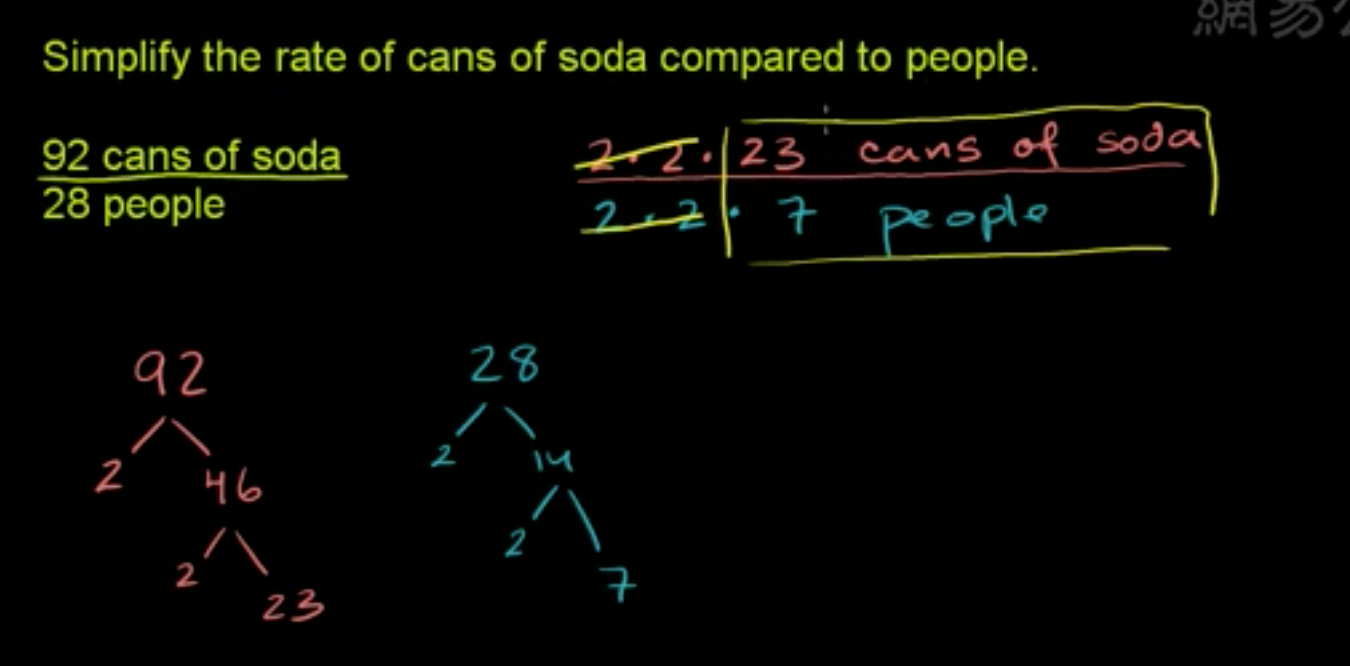 網易公
Simplify the rate of cans of soda compared to people.
92 cans of soda
28 people
2 · 2 · 23 cans of soda
2 · 2 · 7 people
92
2 46
2 23
28
2 14
2 7